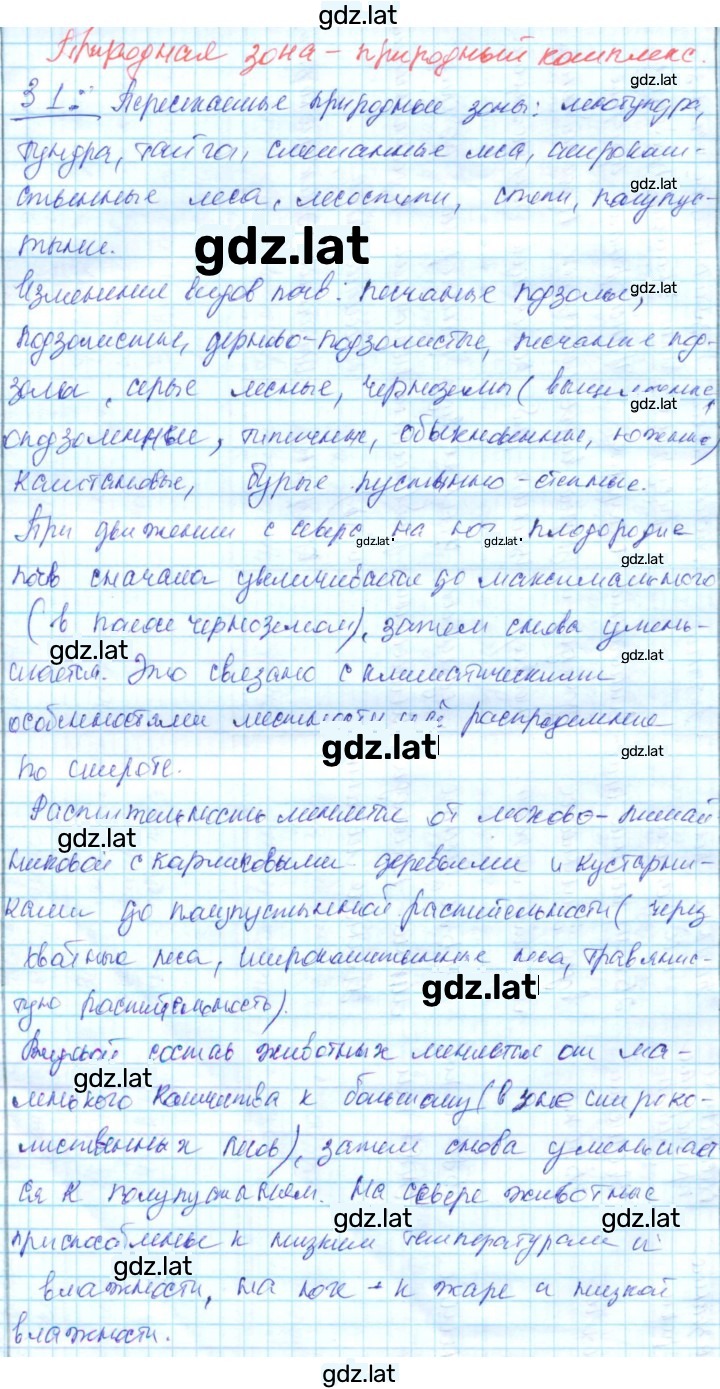 gdz.lat
Природная зона - природный комплекс.
gdz.lat
З 1. Пересекаемые природные зоны: лесотундра,
тундра, тайга, смешанные леса, широколи-
gdz.lat
ственные леса, лесостепи, степи, полупус-
тыни.
gdz.lat
Изменения видов почв: песчаные подзолы,
gdz.lat
подзолистые, дерново-подзолистые, песчаные под-
золы, серые лесные, черноземы (выщелоченные,
gdz.lat
оподзоленные, типичные, обыкновенные, южные)
каштановые, бурые пустынно-степные.
При движении с севера на юг плодородие
gdz.lat gdz.lat
gdz.lat
почв сначала увеличивается до максимального
(в полосе черноземов), затем снова умень-
gdz.lat
gdz.lat
шается. Это связано с климатическими
особенностями местности и их распределение
gdz.lat
gdz.lat
по широте.
Растительность меняется от мохово-лишай
gdz.lat
никовой с карликовыми деревьями и кустарни-
ками до полупустынной растительности (через
хвойные леса, широколиственные леса, травянис-
gdz.lat
тую растительность).
Видовой состав животных меняется от ма-
gdz.lat
ленького количества к большому (в зоне широко-
лиственных лесов), затем снова уменьшает
ся к полупустыням. На севере животные
gdz.lat gdz.lat
приспособлены к низким температурам и
gdz.lat
влажности, на юге - к жаре и низкой
влажности.
gdz.lat